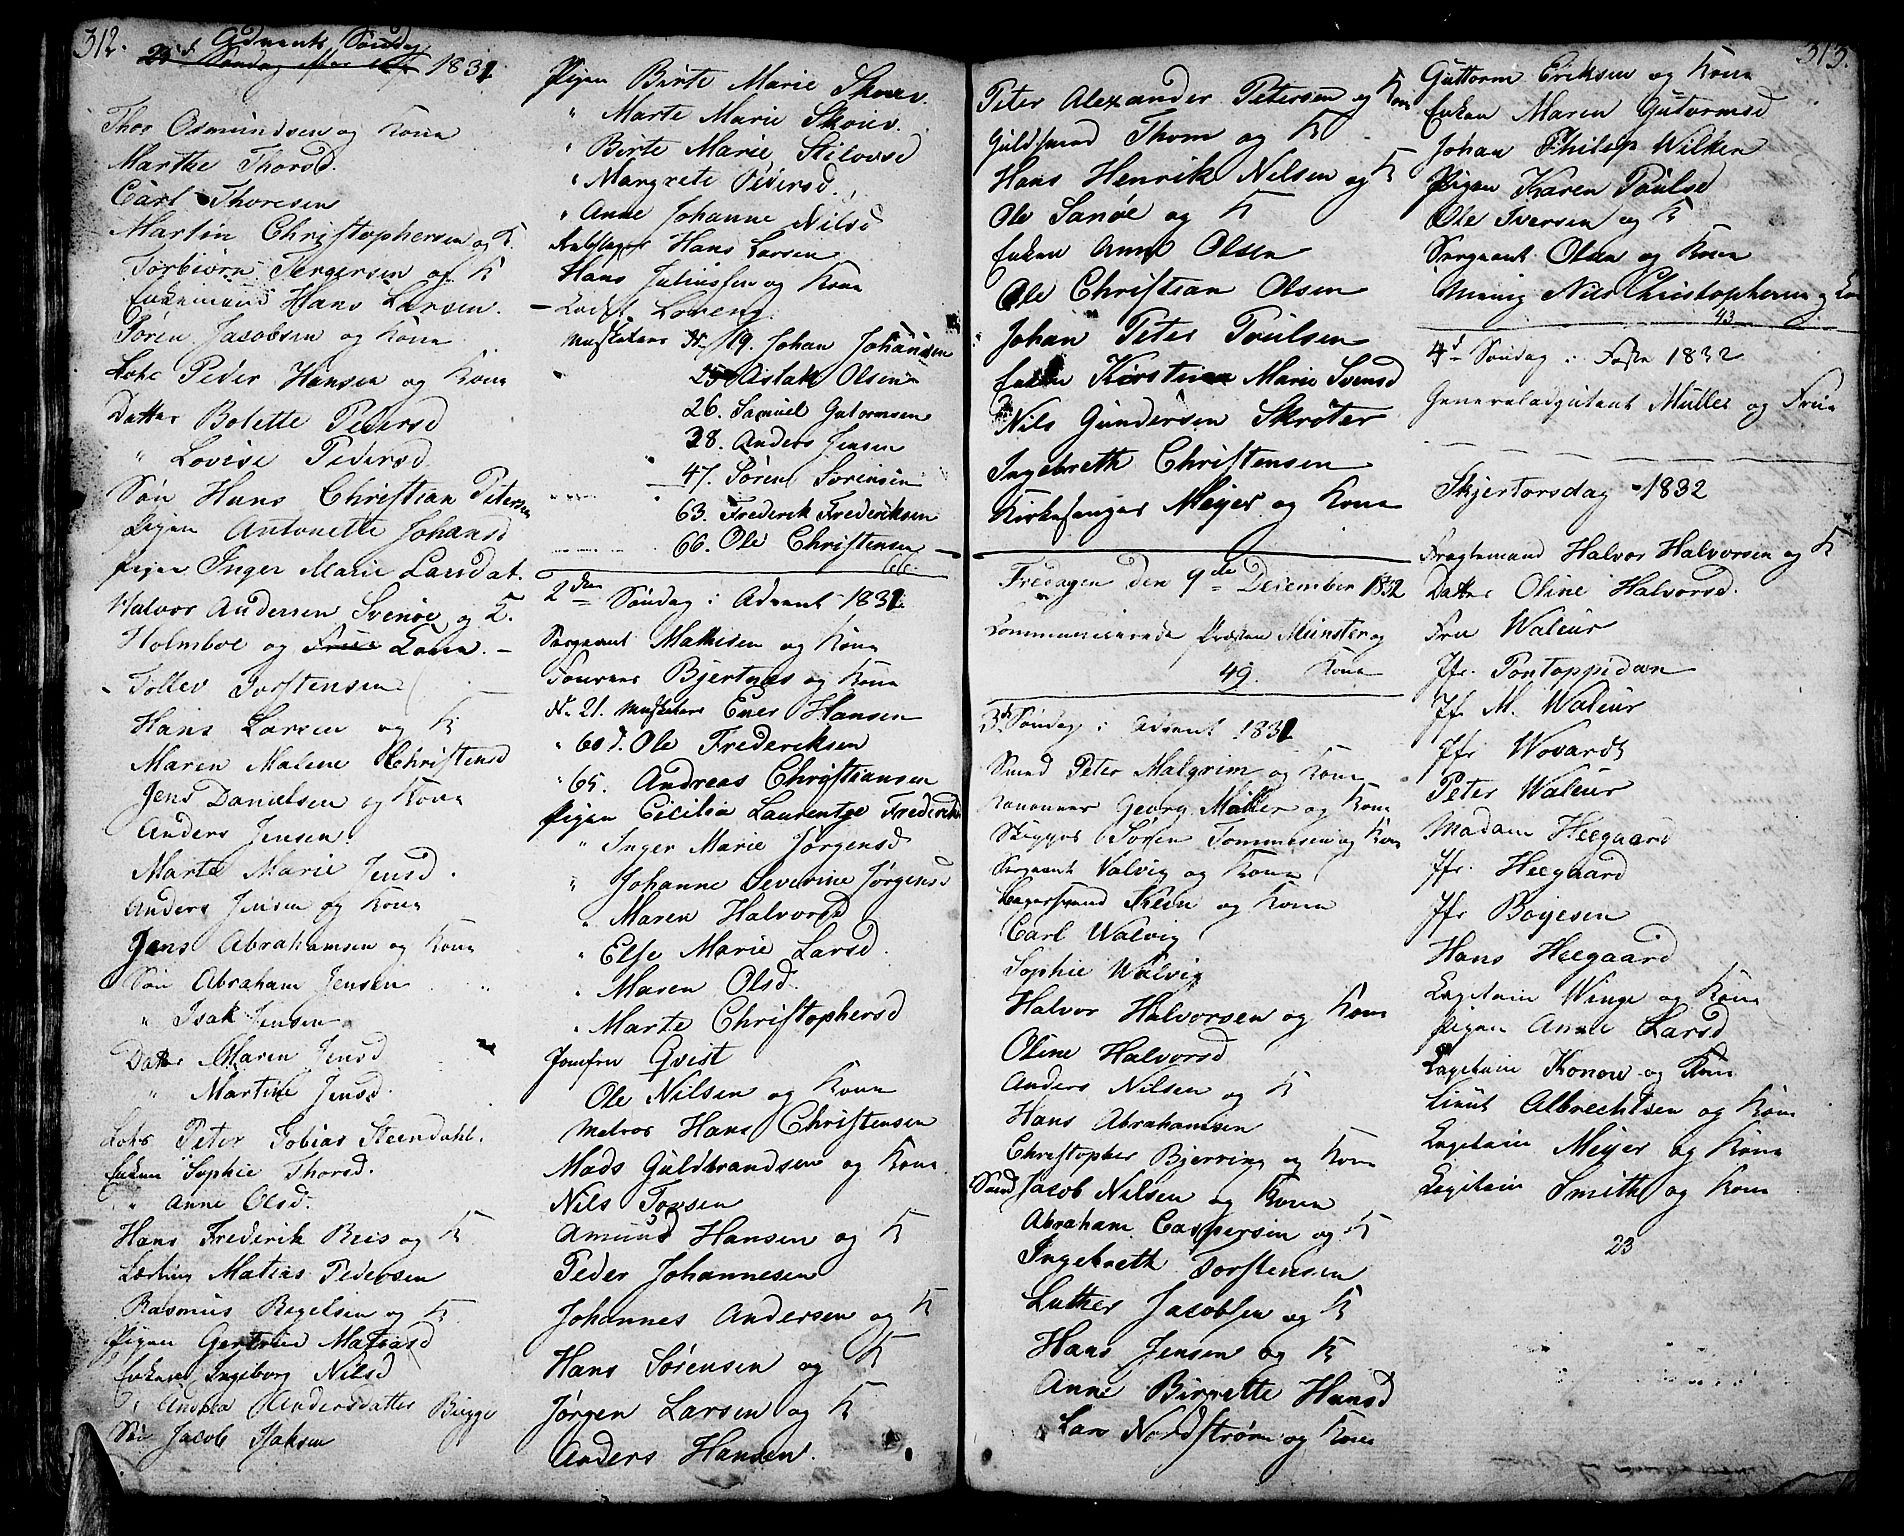 312.
Advents Søndag
1831
Thor Osmundsen og Kone
Marthe Thorsd.
Carl Thoresen
Martin Christophersen og K.
Torbiørn Tergersen og K
Enkemand Hans Larsen.
Søren Jacobsen og Kone
Lots Peder Hansen og Kone
Datter Bolette Pedersd
" Lovise Pedersd.
Søn Hans Christian Petersen
Pigen Antonette Johansd
Pigen Inger Marie Larsdat.
Halvor Andersen Svenøe og K.
Holmboe og Frue Kone. -
Tollev Torstensen
Hans Larsen og K.
Maren Malene Christensd
Jens Danielsen og Kone
Anders Jensen.
Marte Marie Jensd.
Anders Jensen og Kone
Jens Abrahamsen og Kone
Søn Abraham Jensen
" Isak Jensen
Datter Maren Jensd
" Martine Jensd.
Lots Peter Tobias Steendahl.
Enken Sophie Thorsd.
" Anne Olsd.
Hans Frederik Beis og K
Lærling Matias Pedersen
Rasmus Bogelsen og K
Pigen Gertrud Matiasd
Enken Ingeborg Nilsd
Andrea Andersdatter Brygge
Søn Jacob Isaksen
Pigen Birte Marie Skouv.
" Marte Marie Skouv.
" Birte Marie
" Margrete Pedersd.
" Anne Johanne Nilsd
Rebslager Hans Larsen
Hans Juliussen og Kone
- Cadet Lorenz.
Musketeer N. 19. Johan Johansen
25 Aslak Olsen
26. Samuel Gutormsen
38. Anders Jensen
47. Søren Sørensen
63. Frederik Frederiksen
66. Ole Christensen
66.
2den Søndag i Advent 1831.
Sergeant Mathisen og Kone
Foureer Bjertnæs og Kone
N. 21. Musketeer Ener Hansen
" 60 d. Ole Frederiksen
" 65. Andreas Christiansen
Pigen Cicilia Laurentze Frederiksd
" Inger Marie Jørgensd
" Johanne Severine Jørgensd
" Maren Halvorsd
" Else Marie Larsd.
" Maren Olsd.
" Marte Christophersd
Jomfru Qvist
Ole Nilsen og Kone
Matros Hans Christensen
Mads Guldbrandsen og Kone
Nils Torsen
Amund Hansen og K
Peder Johannesen
Johannes Andersen og K
Hans Sørensen og K
Jørgen Larsen og K
Anders Hansen.
313.
Peter Alexander Petersen og Kone
Guldsmed Thom og K
Hans Henrik Nilsen og K
Ole Sanøe og K
Enken Anne Olsen
Ole Christian Olsen
Johan Peter Poulsen
Enken Kirstine Marie Svensd
Nils Gundersen Skrøter
Ingebreth Christensen
Kirkesanger Meijer og Kone
Fredagen den 9de December 1832
Communicerede Præsten Münster og
49. Kone
3d Søndag i Advent 1831
Smed Peter Malgrim og Kone
Kanoneer Georg Müller og Kone
Skipper Søren Tommesen og Kone
Sergeant Valvig og Kone
Klein og Kone
Carl Walvig
Sophie Walvig
Halvor Halvorsen og Kone
Oline Halvorsd
Anders Nilsen og K
Hans Abrahamsen
Christopher Bjerring og Kone
Smed Jacob Nilsen og Kone
Abraham Caspersen og K
Ingebreth Torstensen
Luther Jacobsen og K
Hans Jensen og K
Anne Birgette Hansd
Lars Nordstrøm og Kone
Guttorm Eriksen og Kone
Enken Maren Gutormsd
Johan Philop Wilken
Pigen Karen Poulsd
Ole Iversen og K
Sergeant Olsen og Kone
Menig Nils Christophersen og Kone
43
4d Søndag i Faste 1832
Generaladjutant Müller og Frue
Skjertorsdag 1832
Fragtemand Halvor Halvorsen og K
Datter Oline Halvorsd.
Fru Waleur
Jfr. Pontoppidan
Jf. M. Waleur
Jfr Wovardt
Peter Waleur
Madam Heegaard
Jfr. Heegaard
Jfr Bojesen
Hans Heegaard
Capitain Winge og Kone
Pigen Anne Larsd
Capitain Konow og Kone
Lieut Albrechtsen og Kone
Capitain Meijer og Kone
Capitain Smith og Kone
23